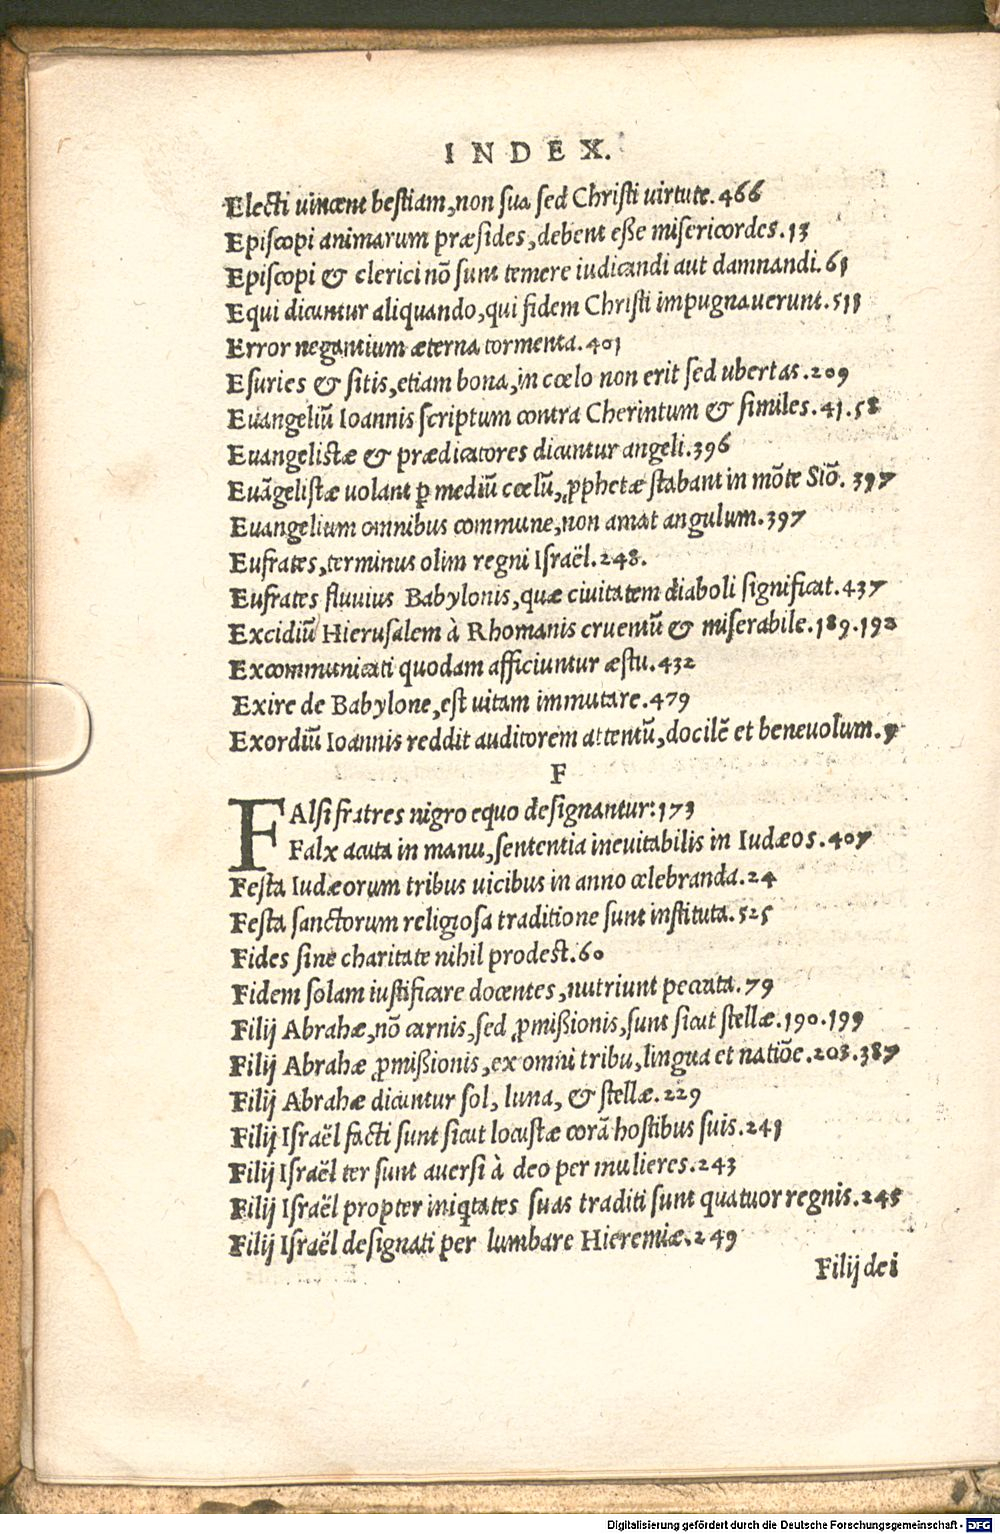 INDEX.
Electi uincent bestiam, non sua sed Christi uirtute. 466
Episcopi animarum præsides, debent eße misericordes. 13
Episcopi & clerici nõ sunt temere iudicandi aut damnandi. 61
Equi dicuntur aliquando, qui fidem Christi impugnauerunt. 511
Error negantium æterna tormenta. 401
Esuries & sitis, etiam bona, in cœlo non erit sed ubertas. 209
Euangeliũ Ioannis scriptum contra Cherintum & similes. 41. 58
Euangelistæ & prædicatores dicuntur angeli. 396
Euãgelistæ uolant ꝑ mediũ cœlũ, ꝓphetæ stabant in mõte Siõ. 397
Euangelium omnibus commune, non amat angulum. 397
Eufrates, terminus olim regni Israël. 248.
Eufrates fluuius Babylonis, quæ ciuitatem diaboli significat. 437
Excidiũ Hierusalem à Rhomanis cruentũ & miserabile. 189. 192
Excommunicati quodam afficiuntur æstu. 432
Exire de Babylone, est uitam immutare. 479
Exordiũ Ioannis reddit auditorem attentũ, docilẽ et beneuolum. 9
F
FAlsi fratres nigro equo designantur: 173
Falx acuta in manu, sententia ineuitabilis in Iudæos. 407
Festa Iudæorum tribus uicibus in anno celebranda. 24
Festa sanctorum religiosa traditione sunt instituta. 525
Fides sine charitate nihil prodest. 60
Fidem solam iustificare docentes, nutriunt peccata. 79
Filij Abrahæ, nõ carnis, sed ꝓmißionis, sunt sicut stellæ. 190. 199
Filij Abrahæ ꝓmißionis, ex omni tribu, lingua et natiõe. 203. 387
Filij Abrahæ dicuntur sol, luna, & stellæ. 229
Filij Israël facti sunt sicut locustæ corã hostibus suis. 241
Filij Israël ter sunt auersi à deo per mulieres. 243
Filij Israël propter iniqtates suas traditi sunt quatuor regnis. 245
Filij Israël designati per lumbare Hieremiæ. 249
Filij dei
Digitalisierung gefördert durch die Deutsche Forschungsgemeinschaft - DFG